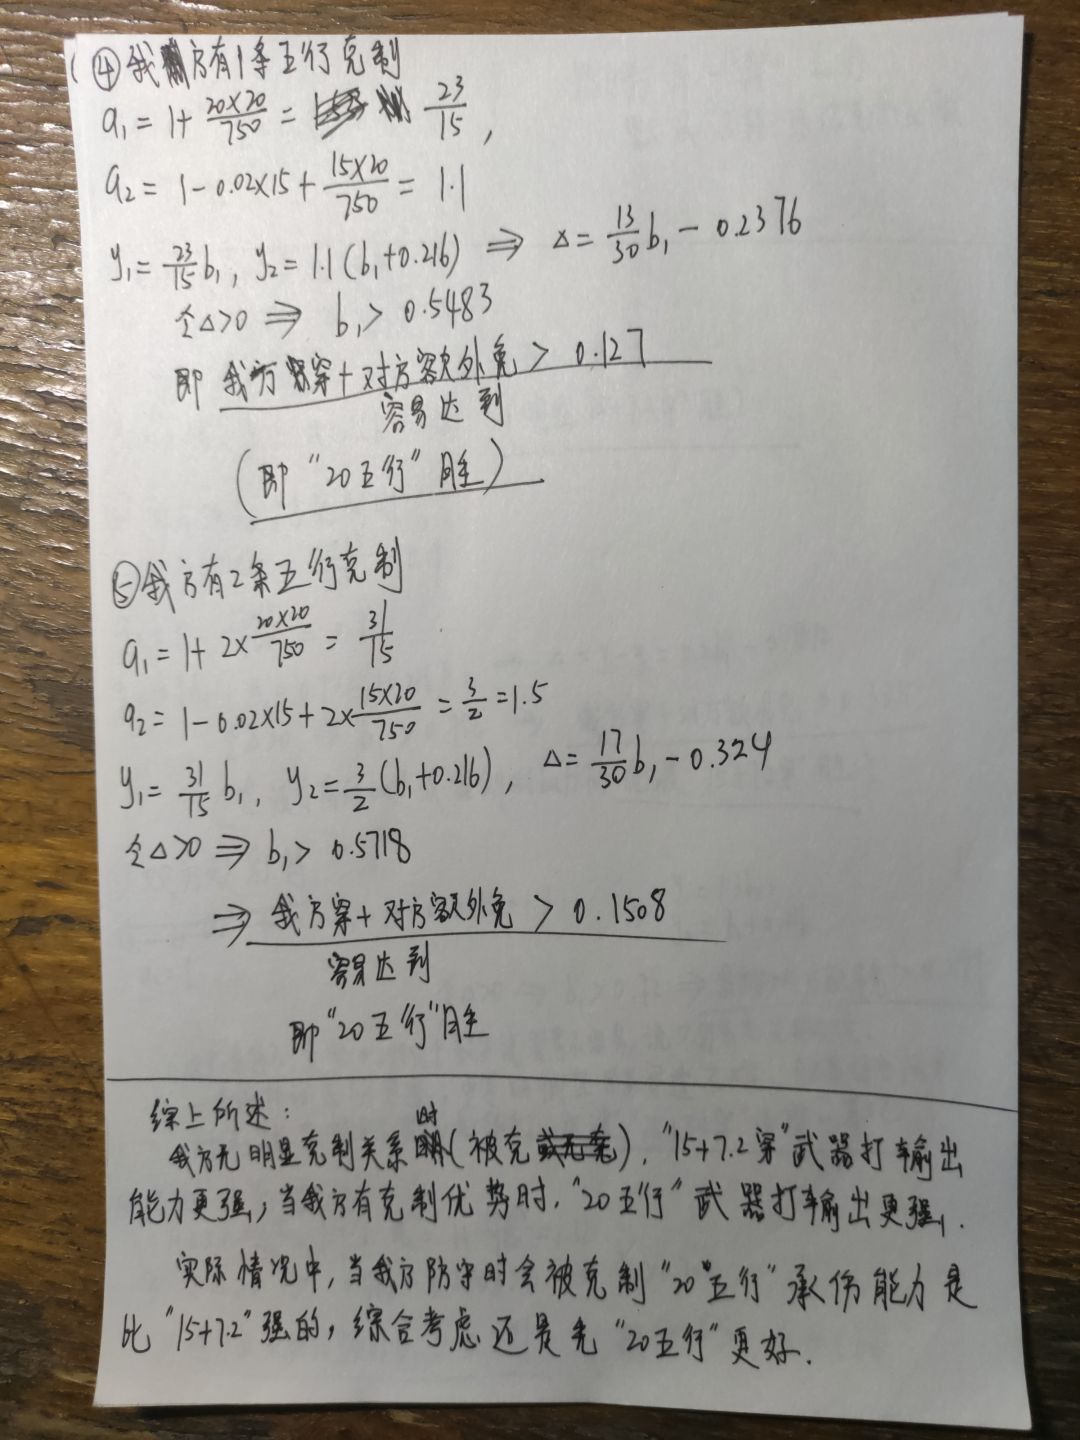 ④我方有1条五行克制
a₁=1+20×20/750= 23/15,
a₂=1-0.02×15+15×20/750=1.1
y₁=23/15b₁, y₂=1.1(b₁+0.216) ⇒ △=13/30b₁-0.2376
令△>0 ⇒ b₁>0.5483
即 我方穿+对方额外免>0.127
容易达到
(即"20五行"胜)
⑤我方有2条五行克制
a₁=1+2×20×20/750=31/15
a₂=1-0.02×15+2×15×20/750=3/2=1.5
y₁=31/15b₁, y₂=3/2(b₁+0.216), △=17/30b₁-0.324
令△>0⇒b₁>0.5718
⇒ 我方穿+对方额外免>0.1508
容易达到
即"20五行"胜
综上所述:
我方无明显克制关系时(被克),"15+7.2穿"武器打输出
能力更强,当我方有克制优势时,"20五行"武器打输出更强.
实际情况中,当我方防守时会被克制"20五行"承伤能力是
比"15+7.2"强的,综合考虑还是先"20五行"更好.